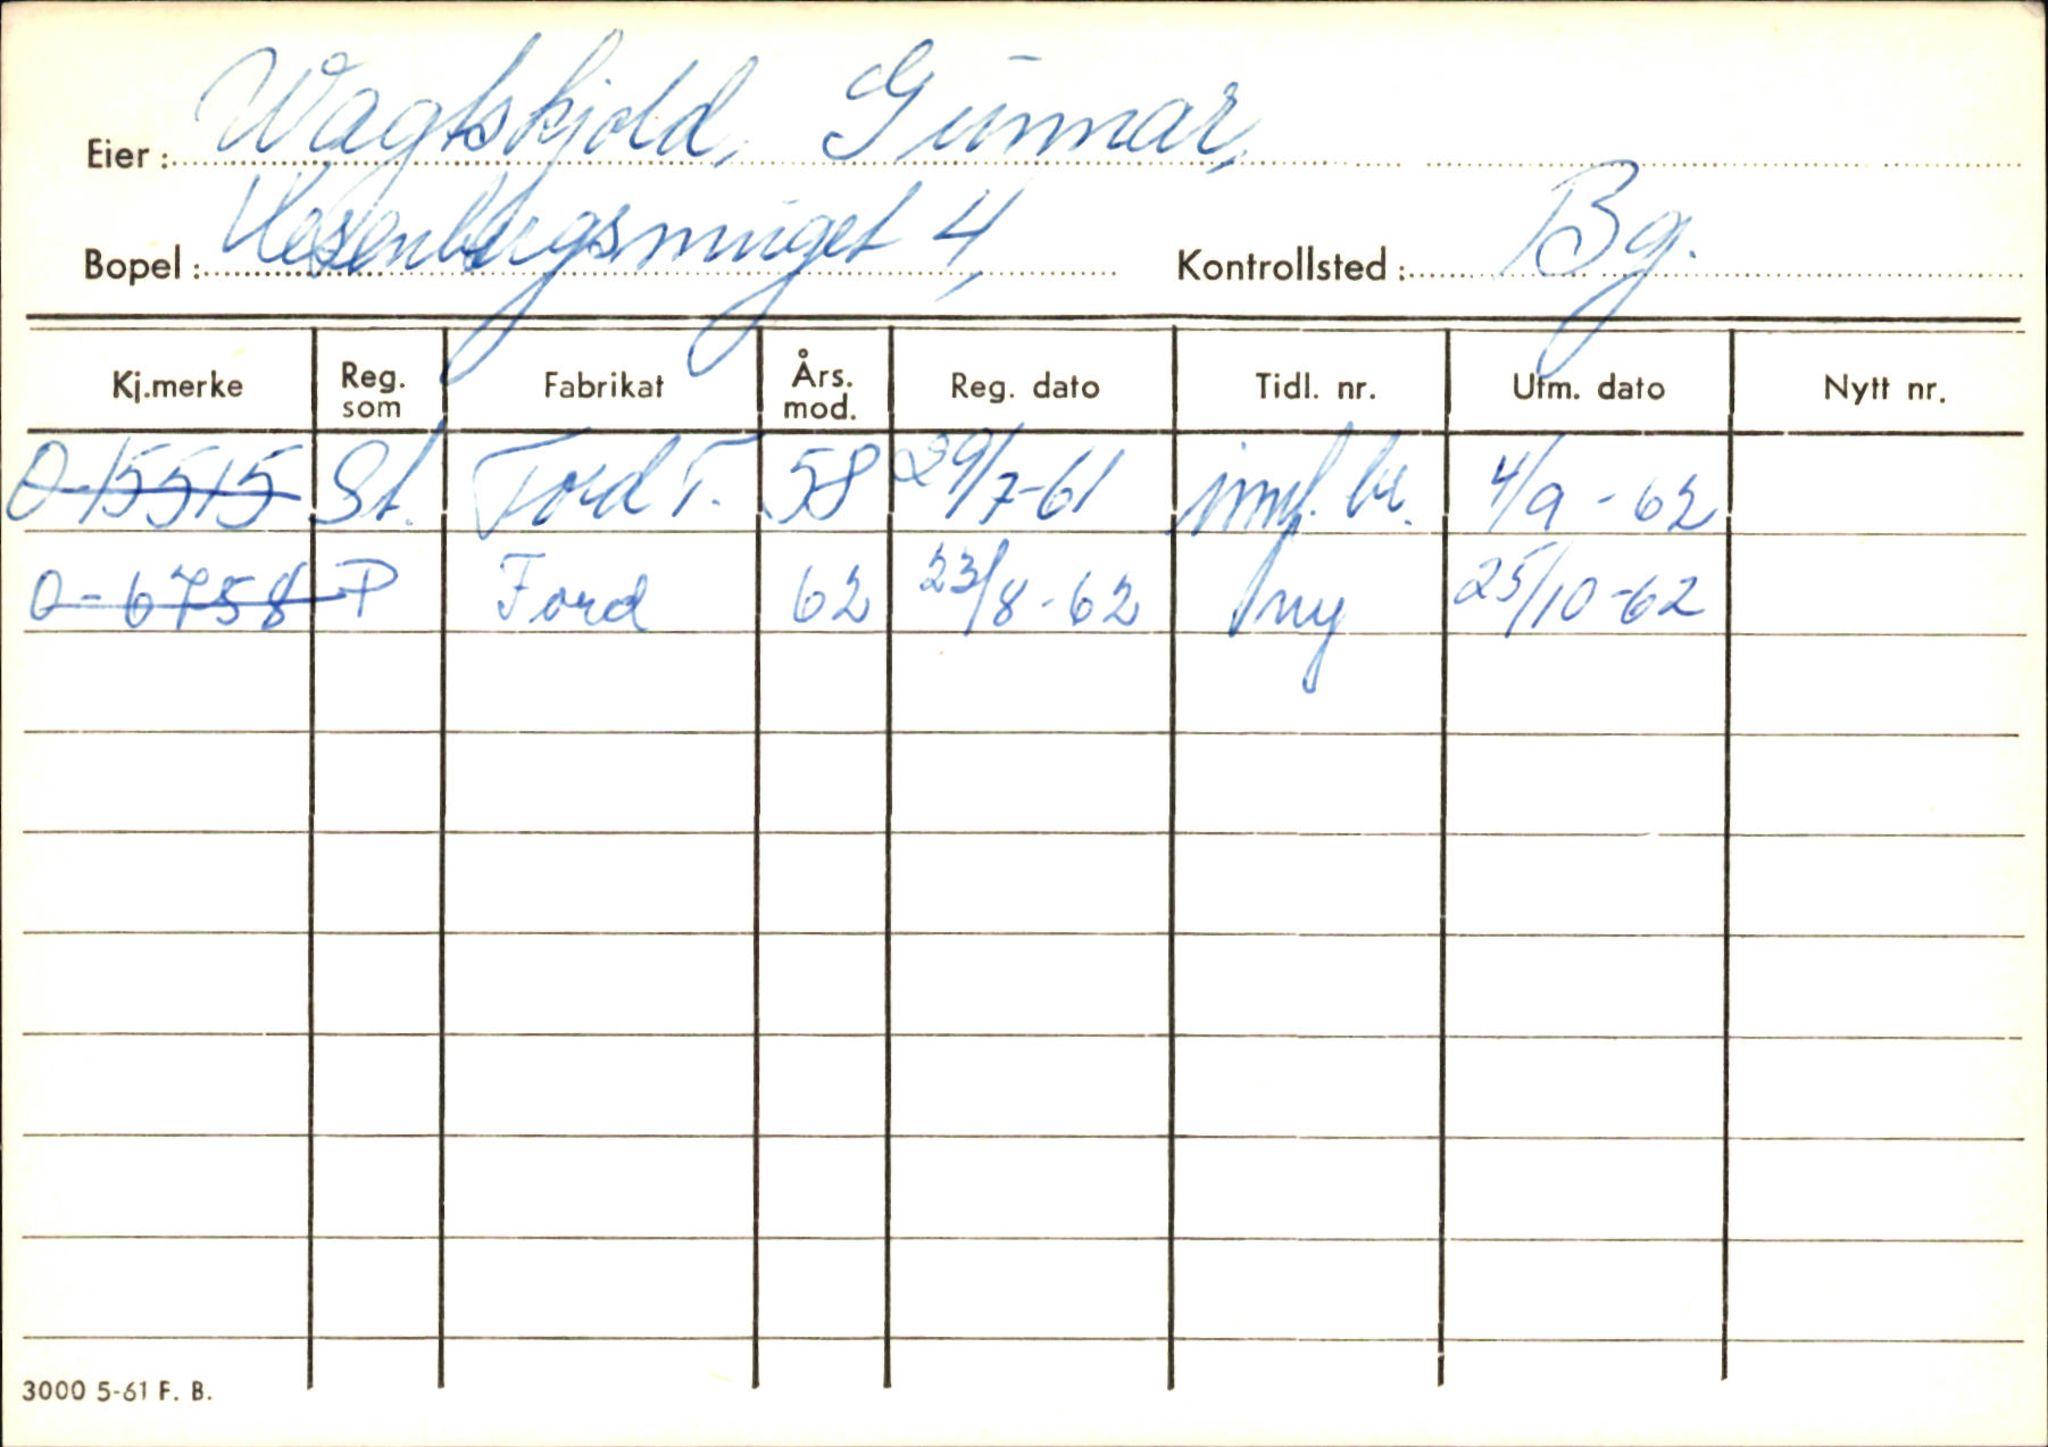 Eier: Wagtskjold, Gunnar,
Bopel: Hesenbergsmuget 4, Kontrollsted: Bg.
Kj.merke Reg. som Fabrikat Års. mod. Reg. dato Tidl. nr. Utm. dato Nytt nr.
O-15515 St. Ford T. 58 29/7-61 innf. br. 4/9-62
O-6758 P Ford 62 23/8-62 ny 25/10-62
3000 5-61 F. B.